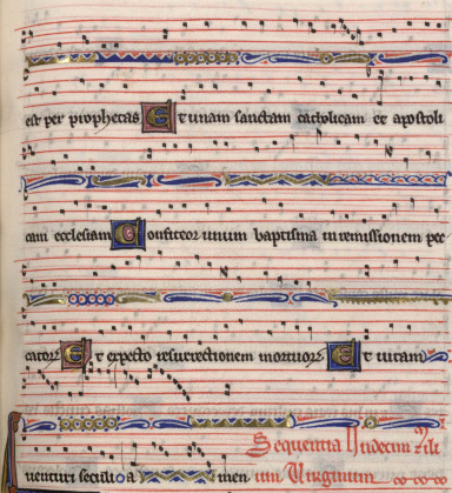 est per prophetas Et unam sanctam catholicam et apostoli
cam ecclesiam Confiteor unum baptisma in remissionem pec
catorꝝ Et expecto resurrectionem mortuorꝝ Et uitam
Sequentia Undecim mili
uenturi seculi a men um Uirginum